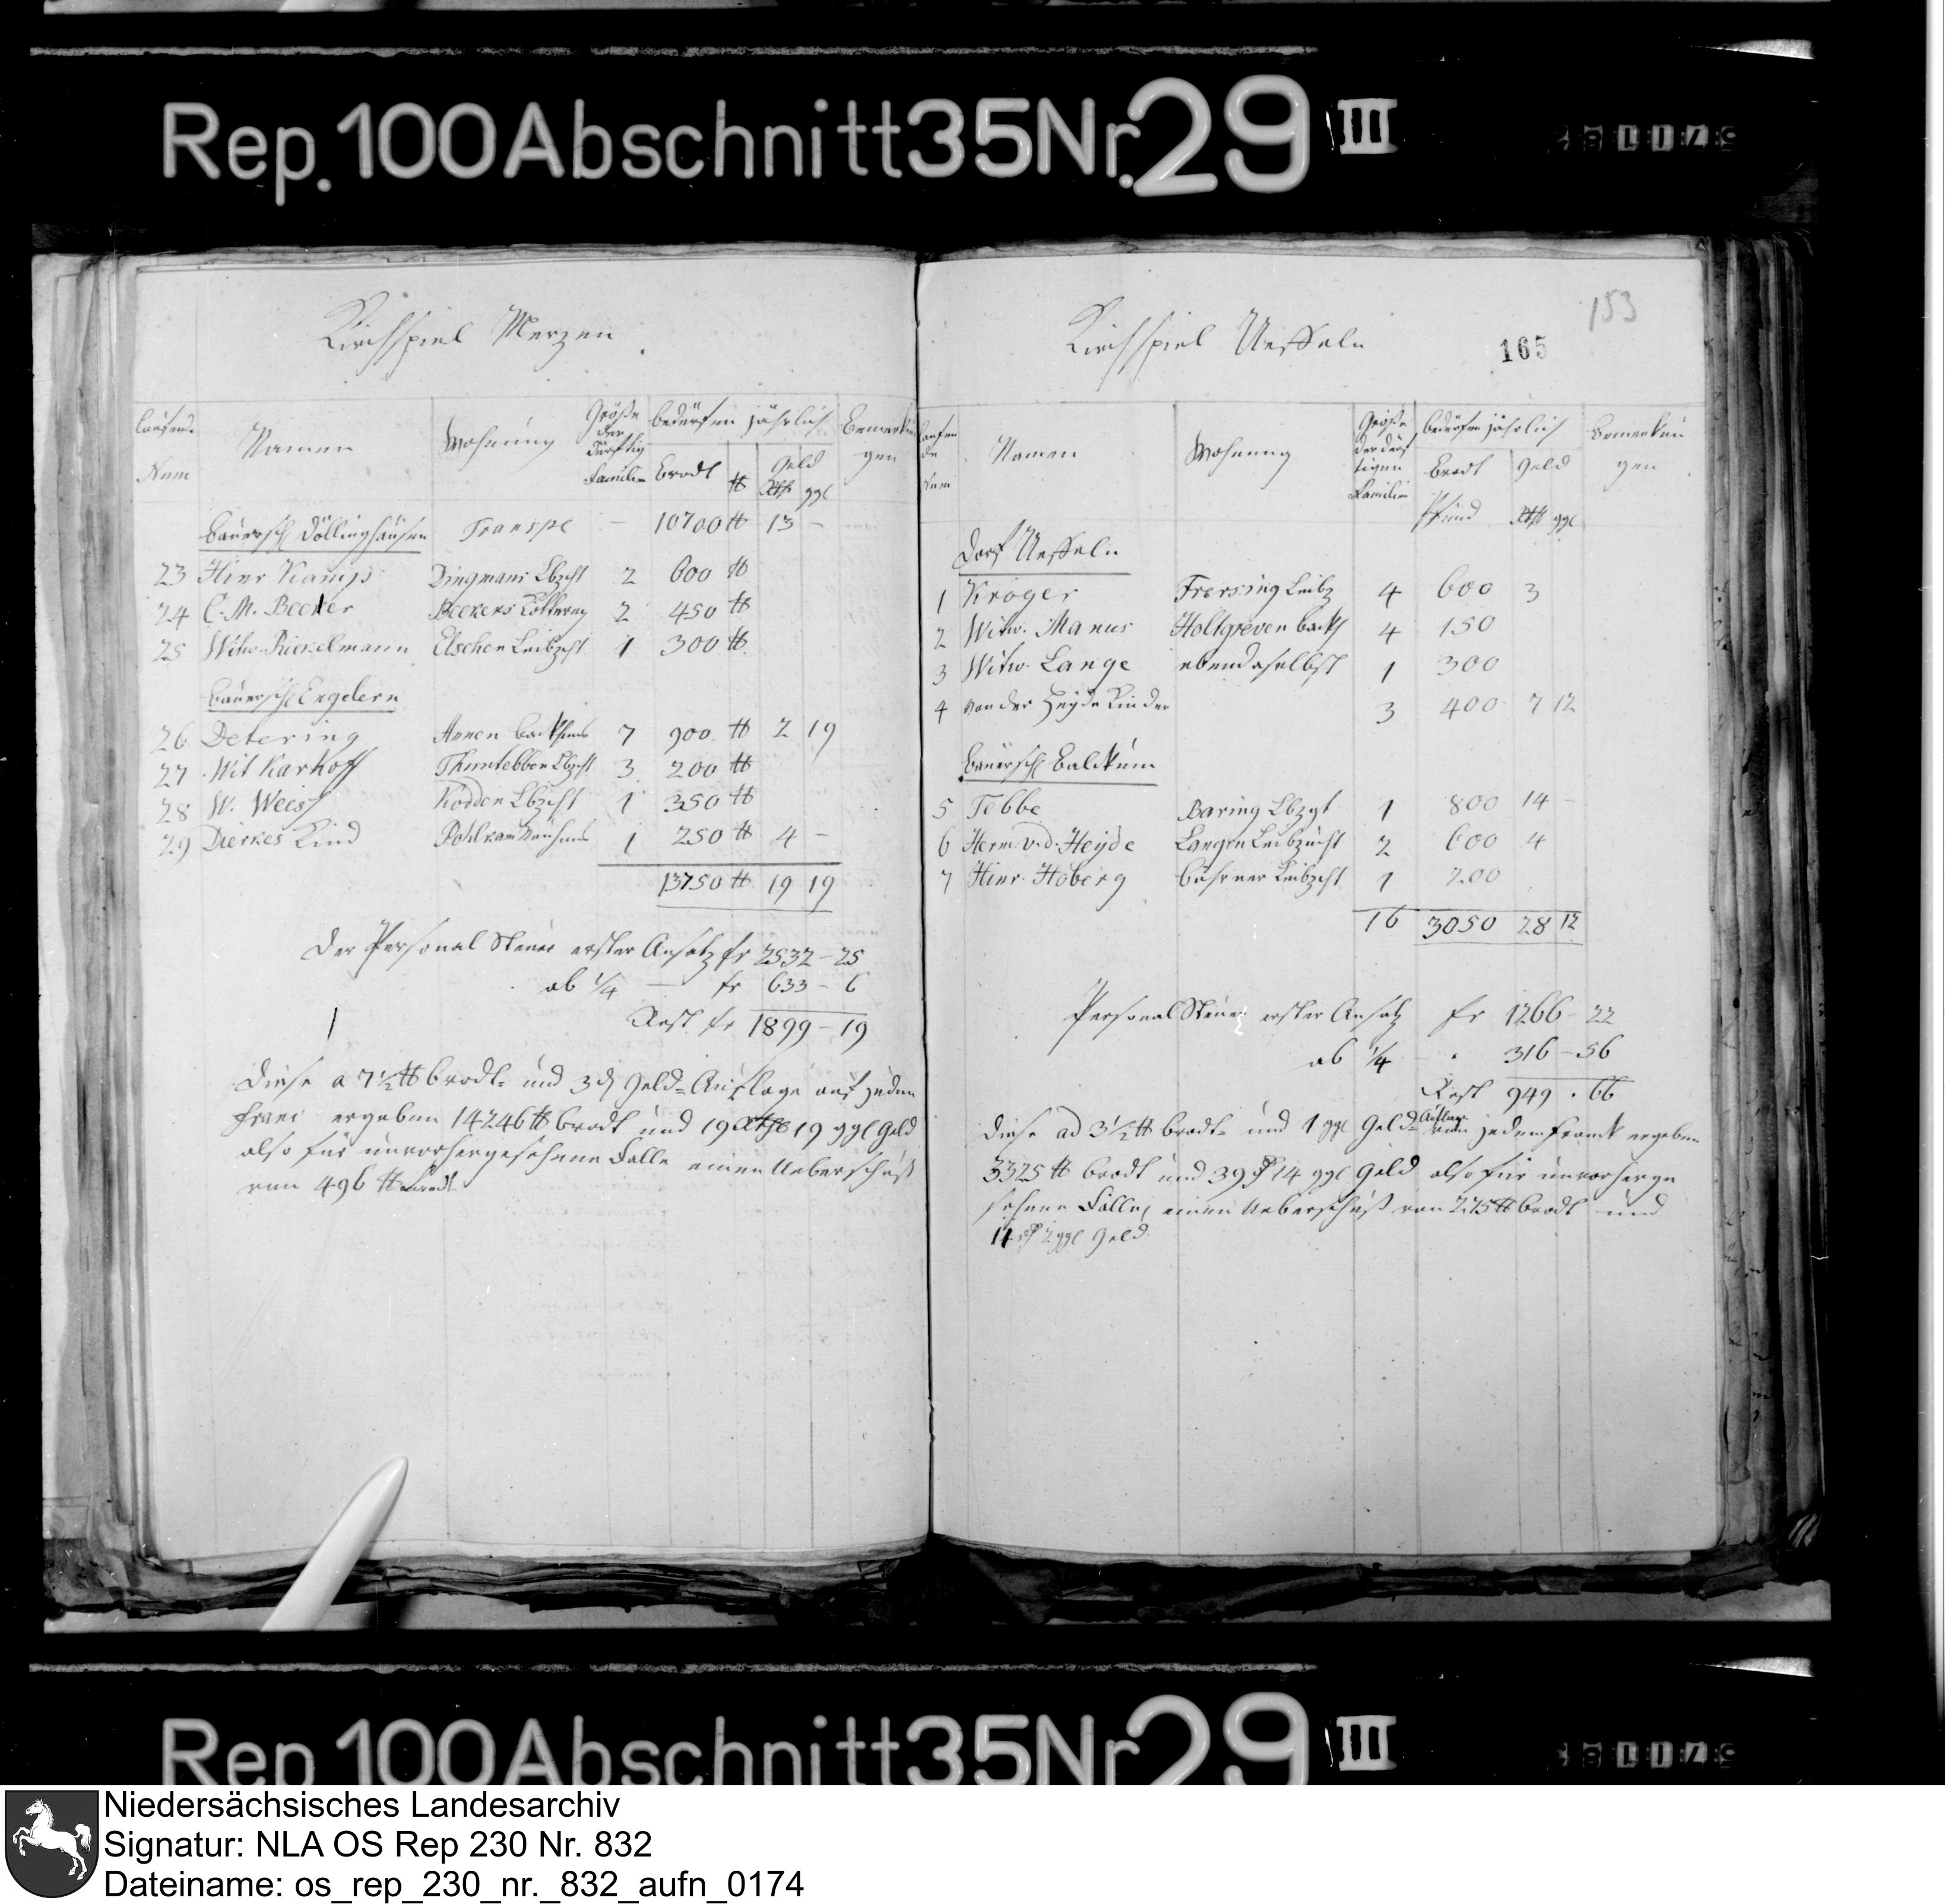 Rep. 100 Abschnitt 35 Nr. 29 III
Kirchspiel Merzen
Laufend. Num
Namen
Wohnung
Größe der dürftig Familie
bedürfen jährlich
Brodt ℔
Geld
Rth ggl
Bemerkun gen
Bauersch Döllinghausen Transpe — 10700 ℔ 13 —
23 Hinr Kamps Dingmans Lbzcht 2 600 ℔
24 C. M. Becker Beckers Kötterey 2 450 ℔
25 Witw. Rickelmann Elschen Leibzcht 1 300 ℔
Bauersch Engelern
26 Detering Annen Backhaus 7 900 ℔ 2 19
27 Wit Karhoff Thumtebben Lbzcht 3 200 ℔
28 W. Weiss Kodden Lbzcht 1 350 ℔
29 Dierkes Kind 1 250 ℔ 4 —
13750 ℔ 19 19
Der Personal Steuer erster Ansatz fr 2532 – 25
ab ¼ — fr 633 – 6
Rest fr 1899 – 19
Diese a 7½ ℔ Brodt- und 3 d Geld-Auflage auf jeden
Franc ergeben 14246 ℔ Brodt und 19 Rth 19 ggl Geld
also für unvorhergesehene Falle einen Ueberschuß
von 496 ℔ Brodt
Kirchspiel Ueffeln
153
165
Laufen de Num
Namen
Wohnung
Größe der dürf tigen Familie
bedürfen jährlich
Brodt Geld
Pfund Rth ggl
Bemerkun gen
Dorf Ueffeln
1 Kröger Frersing Leibz 4 600 3
2 Witw. Manus Holtgreven Backs 4 150
3 Witw. Lange ebendaselbst 1 300
4 von der Heyde Kinder 3 400 7 12
Bauersch Balckum
5 Tebbe Baring Lbzgt 1 800 14 —
6 Herm v.d. Heyde Langen Leibzucht 2 600 4
7 Hinr. Hoberg Bührner Leibzcht 1 200
16 3050 28 12
Personal Steuer erster Ansatz fr 1266 – 22
ab ¼ – " 316 – 56
Rest 949 . 66
Diese ad 3½ ℔ Brodt- und 1 ggl Geld-Auflage von jedem Franck ergeben
3325 ℔ Brodt und 39 Rth 14 ggl Geld also für unvorherge
sehene Fälle, einen Ueberschuß von 275 ℔ Brodt und
11 Rth 2 ggl Geld
Rep. 100 Abschnitt 35 Nr. 29 III
Niedersächsisches Landesarchiv
Signatur: NLA OS Rep 230 Nr. 832
Dateiname: os_rep_230_nr._832_aufn_0174